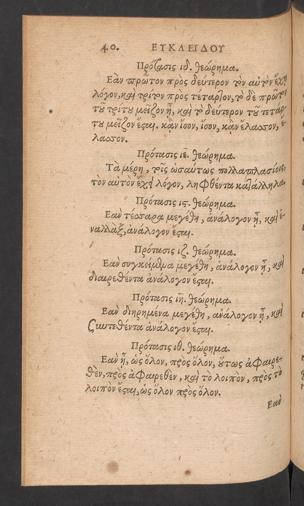 40. ΕΥΚΛΕΙΔΟΥ
Πρότασις ιδ. θεώρημα.
Εὰν πρῶτον πρὸς δεύτερον τὸν αὐτὸν ἔχῃ
λόγον, καὶ τρίτον πρὸς τέταρτον, τὸ δὲ πρῶτον
τοῦ τρίτου μεῖζον ᾖ, καὶ τὸ δεύτερον τοῦ τετάρ-
του μεῖζον ἔσται. κἂν ἴσον, ἴσον, κἂν ἔλασσον, ἔ-
λασσον.
Πρότασις ιε. θεώρημα.
Τὰ μέρη, τοῖς ὡσαύτως πολλαπλασίοις
τὸν αὐτὸν ἔχει λόγον, ληφθέντα κατάλληλα.
Πρότασις ις. θεώρημα.
Εὰν τέσσαρα μεγέθη, ἀνάλογον ᾖ, καὶ ἐ-
ναλλὰξ, ἀνάλογον ἔσται.
Πρότασις ιζ. θεώρημα.
Εὰν συγκείμενα μεγέθη, ἀνάλογον ᾖ, καὶ
διαιρεθέντα ἀνάλογον ἔσται.
Πρότασις ιη. θεώρημα.
Εὰν διῃρημένα μεγέθη, ἀνάλογον ᾖ, καὶ
συντεθέντα ἀνάλογον ἔσται.
Πρότασις ιθ. θεώρημα.
Εὰν ᾖ, ὡς ὅλον, πρὸς ὅλον, οὕτως ἀφαιρε-
θὲν, πρὸς ἀφαιρεθὲν, καὶ τὸ λοιπὸν, πρὸς τὸ
λοιπὸν ἔσται, ὡς ὅλον πρὸς ὅλον.
Εὰν